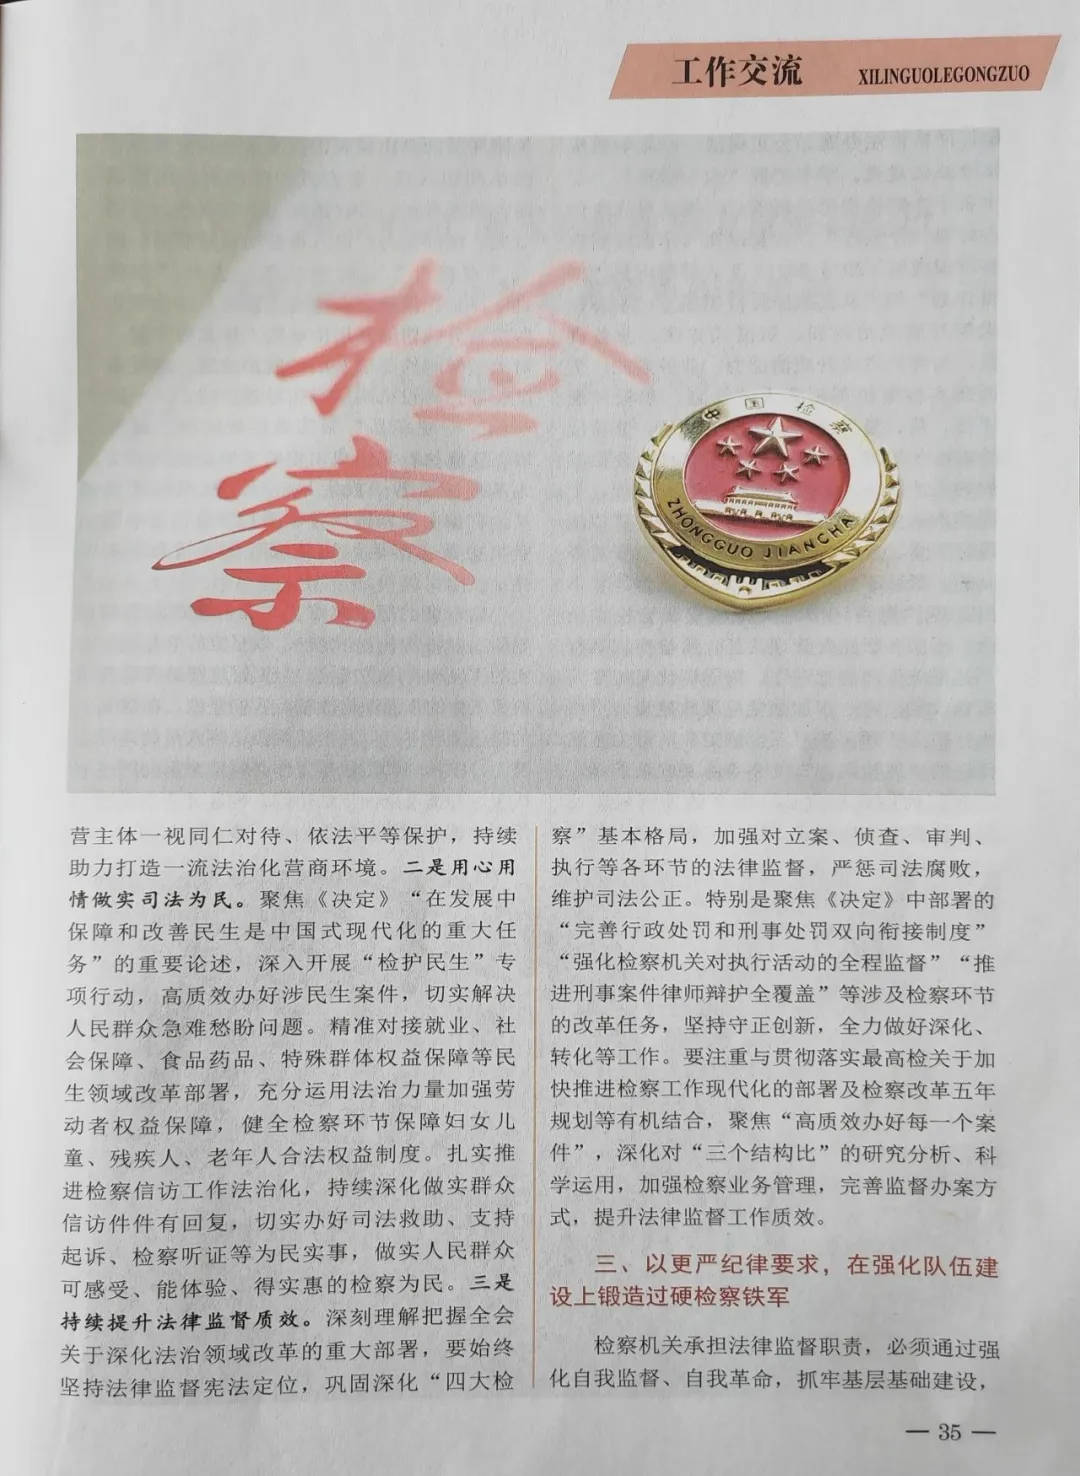 工作交流 XILINGUOLEGONGZUO
检
察
中国检察
ZHONGGUO JIANCHA
营主体一视同仁对待、依法平等保护，持续
助力打造一流法治化营商环境。二是用心用
情做实司法为民。聚焦《决定》“在发展中
保障和改善民生是中国式现代化的重大任
务”的重要论述，深入开展“检护民生”专
项行动，高质效办好涉民生案件，切实解决
人民群众急难愁盼问题。精准对接就业、社
会保障、食品药品、特殊群体权益保障等民
生领域改革部署，充分运用法治力量加强劳
动者权益保障，健全检察环节保障妇女儿
童、残疾人、老年人合法权益制度。扎实推
进检察信访工作法治化，持续深化做实群众
信访件件有回复，切实办好司法救助、支持
起诉、检察听证等为民实事，做实人民群众
可感受、能体验、得实惠的检察为民。三是
持续提升法律监督质效。深刻理解把握全会
关于深化法治领域改革的重大部署，要始终
坚持法律监督宪法定位，巩固深化“四大检
察”基本格局，加强对立案、侦查、审判、
执行等各环节的法律监督，严惩司法腐败，
维护司法公正。特别是聚焦《决定》中部署的
“完善行政处罚和刑事处罚双向衔接制度”
“强化检察机关对执行活动的全程监督”“推
进刑事案件律师辩护全覆盖”等涉及检察环节
的改革任务，坚持守正创新，全力做好深化、
转化等工作。要注重与贯彻落实最高检关于加
快推进检察工作现代化的部署及检察改革五年
规划等有机结合，聚焦“高质效办好每一个案
件”，深化对“三个结构比”的研究分析、科
学运用，加强检察业务管理，完善监督办案方
式，提升法律监督工作质效。
三、以更严纪律要求，在强化队伍建
设上锻造过硬检察铁军
检察机关承担法律监督职责，必须通过强
化自我监督、自我革命，抓牢基层基础建设，
— 35 —